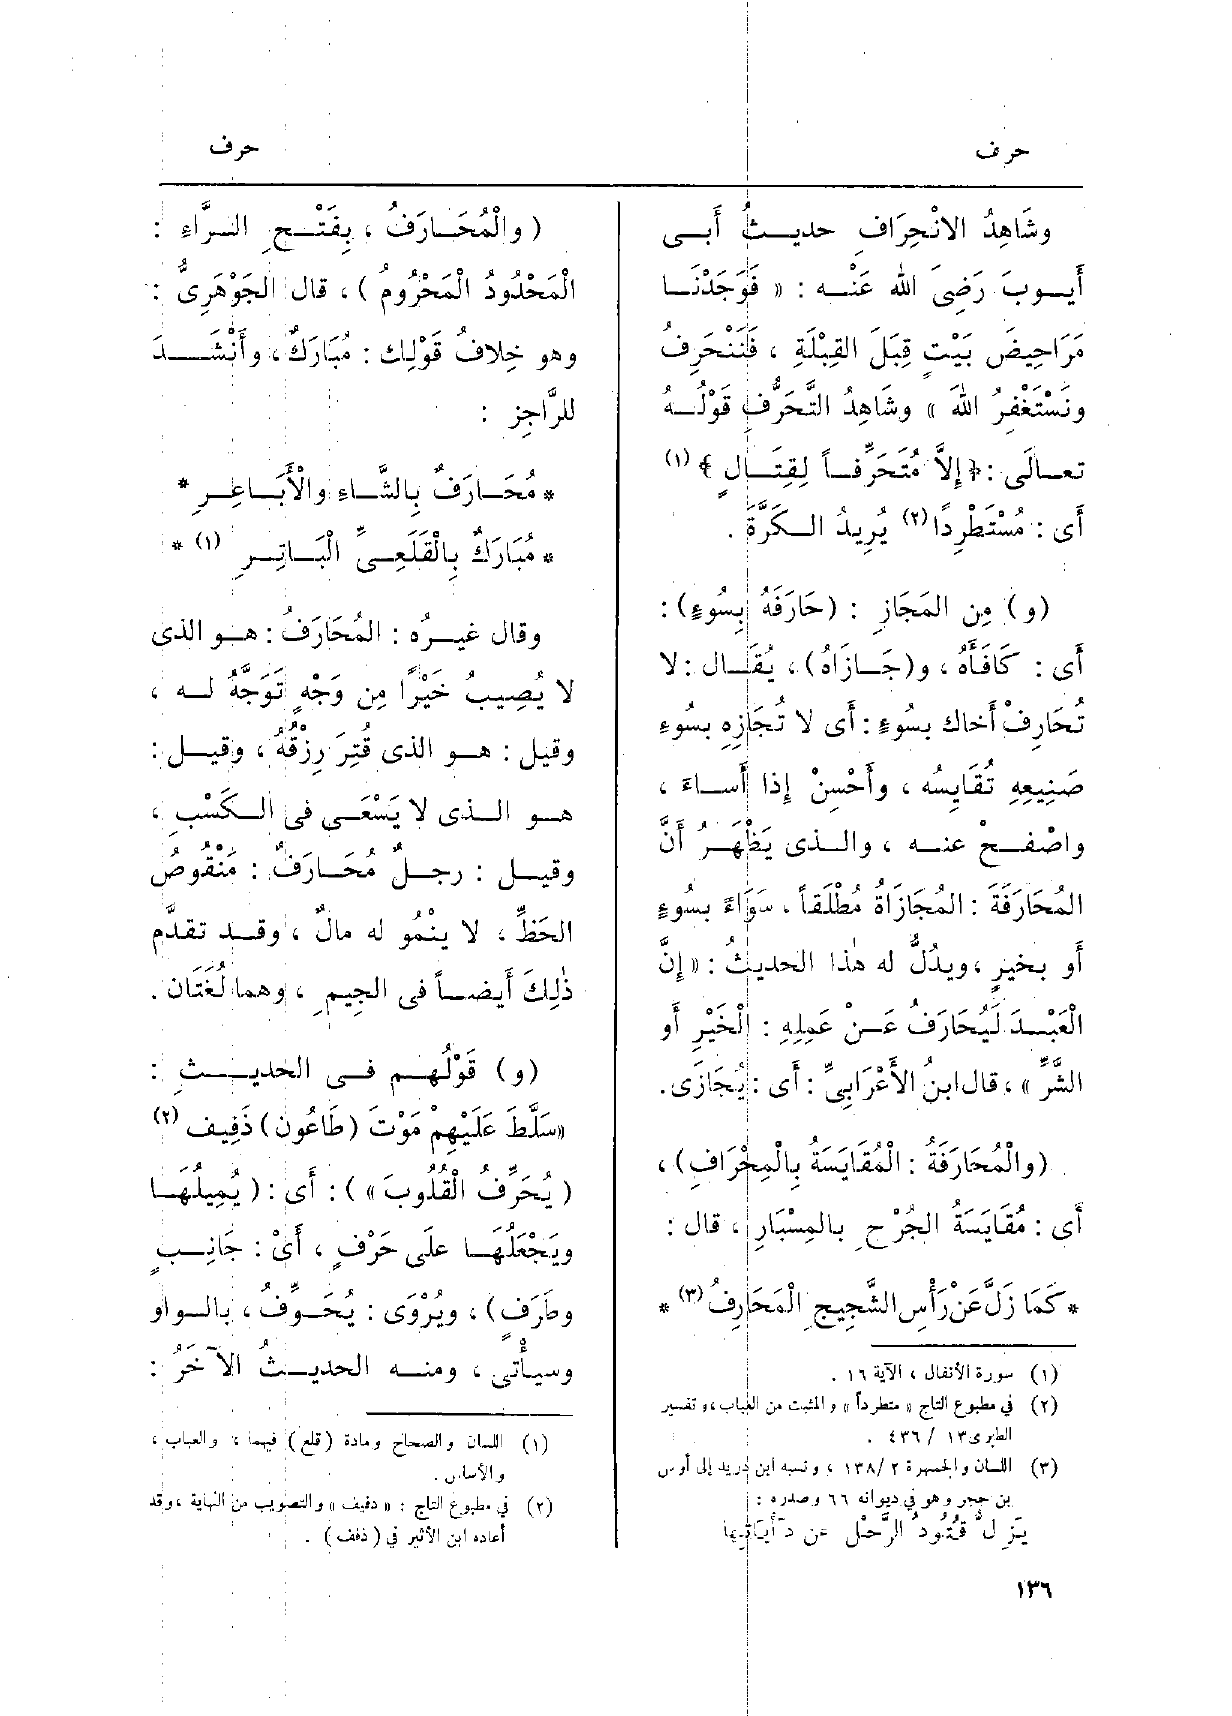 حرف
حرف
وشَاهِدُ الانْحِرَافِ حديــثُ أَبــى
أَيــوبَ رَضِىَ اللهُ عَنْـه : « فَوَجَدْنَــا
مَرَاحِيضَ بَيْتٍ قِبَلَ القِبْلَةِ ، فَنَنْحَرِفُ
ونَسْتَغْفِرُ اللهَ » وشَاهِدُ التَّحَرُّفِ قَوْلُــهُ
تعـالَى : ﴿ إِلاَّ مُتَحَرِّفـاً لِقِتَـالٍ ﴾ (١)
أَى : مُسْتَطْرِدًا(٢) يُرِيدُ الـكَرَّةَ .
(و) مِن المَجَازِ : (حَارَفَهُ بِسُوءٍ) :
أَى : كَافَأَه ، و(جَـازَاهُ) ، يُقَـال : لا
تُحَارِفْ أَخاك بسُوءٍ : أَى لا تُجَازِهِ بسُوءِ
صَنِيعِهِ تُقَايسُه ، وأَحْسِنْ إِذا أَسـاءَ ،
واصْفـحْ عنـه ، والـذى يَظْهَـرُ أَنَّ
المُحَارَفَةَ : المُجَازَاةُ مُطْلَقاً ، سَوَاءٌ بسُوءٍ
أَو بخيرٍ ، ويدُلُّ له هٰذا الحديثُ : « إِنَّ
الْعَبْـدَ لَيُحَارَفُ عَـنْ عَمِلِهِ : الْخَيْرِ أَو
الشَّرِّ » ، قال ابنُ الأَعْرَابِيِّ : أَى : يُجَازَى.
(والْمُحَارَفَةُ : الْمُقَايَسَةُ بِالْمِحْرَافِ) ،
أَى : مُقَايَسَةُ الجُرْحِ بالمِسْبَارِ ، قال :
* كَمَا زَلَّ عَنْ رَأْسِ الشَّجِيجِ الْمَحَارِفُ (٣) *
(١) سورة الأنفال ، الآية ١٦ .
(٢) في مطبوع التاج « متطرداً » والمثبت من العباب، وتفسير
الطبرى ١٣ / ٤٣٦ .
(٣) اللسان والجمهرة ٢ /١٣٨ ، ونسبه ابن دريد إلى أوس
بن حجر وهو في ديوانه ٦٦ وصدره :
يَزِلُّ قُتُودُ الرَّحْلِ عن دَأَيَاتِها
١٣٦
( والْمُحَـارَفُ ، بِفَتْـحِ الـرَّاءِ :
الْمَحْدُودُ الْمَحْرُومُ ) ، قال الجَوْهَرِىُّ :
وهو خِلافُ قَوْلِك : مُبَارَكٌ ، وأَنْشَــدَ
للرَّاجِزِ :
* مُحَـارَفٌ بِالشَّـاءِ والْأَبَـاعِـرِ *
* مُبَارَكٌ بِالْقَلَعِـىِّ الْبَـاتِـرِ (١) *
وقال غيـرُه : المُحَارَفُ : هـو الذى
لا يُصِيبُ خَيْرًا مِن وَجْهٍ تَوَجَّهُ لـه ،
وقيل : هـو الذى قُتِرَ رِزْقُهُ ، وقيـل :
هـو الـذى لا يَسْعَـى فى الـكَسْبِ ،
وقيـل : رجـلٌ مُحَـارَفٌ : مَنْقُوصُ
الحَظِّ ، لا ينْمُو له مالٌ ، وقـد تقدَّم
ذٰلِكَ أَيضـاً فى الجيمِ ، وهما لُغَتَان .
(و) قَوْلُهـم فـى الحديـثِ :
«سَلَّطَ عَلَيْهِمْ مَوْتَ (طَاعُونٍ) ذَفِيف (٢)
( يُحَرِّفُ الْقُلُوبَ » ) : أَى : ( يُمِيلُهَـا
ويَجْعَلُهَـا علَى حَرْفٍ ، أَىْ : جَانِـبٍ
وطَرَفٍ) ، ويُرْوَى : يُحَـوِّفُ ، بالـواو
وسيأْتى ، ومنـه الحديـثُ الآخَرُ :
(١) اللسان والصحاح ومادة (قلع) فيهما ، والعباب ،
والأساس .
(٢) في مطبوع التاج : « دفيف » والتصويب من النهاية ، وقد
أعاده ابن الأثير في ( ذفف ) .